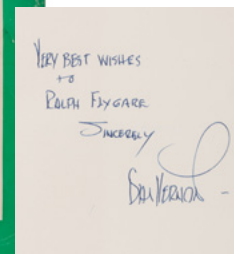 VERY BEST WISHES
to
RALPH FLYGARE
SINCERELY
DAI VERNON